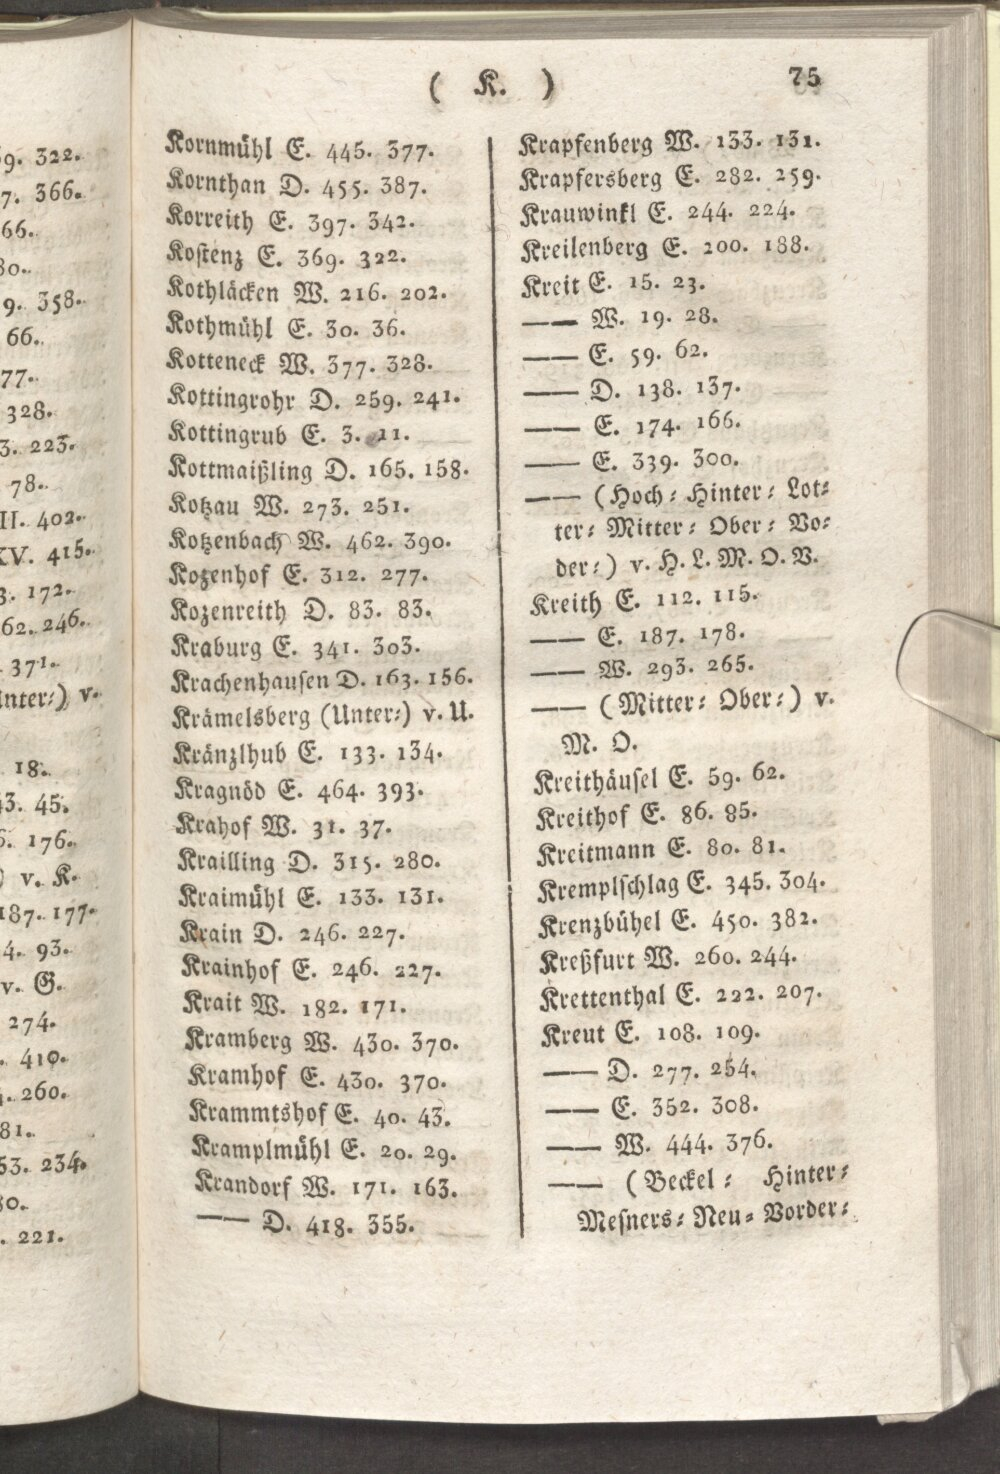 9. 322.
7. 366.
66.
80.
9. 358.
66.
77.
328.
3. 223.
78.
II. 402.
XV. 415.
3. 172.
62. 246.
371.
Unter⸗) v.
18.
43. 45.
6. 176.
) v. K.
187. 177.
4. 93.
v. G.
274.
. 410.
4. 260.
81.
53. 234.
30.
. 221.
( K. ) 75
Kornmühl E. 445. 377.
Kornthan D. 455. 387.
Korreith E. 397. 342.
Kostenz E. 369. 322.
Kothläcken W. 216. 202.
Kothmühl E. 30. 36.
Kotteneck W. 377. 328.
Kottingrohr D. 259. 241.
Kottingrub E. 3. 11.
Kottmaißling D. 165. 158.
Kotzau W. 273. 251.
Kotzenbach W. 462. 390.
Kozenhof E. 312. 277.
Kozenreith D. 83. 83.
Kraburg E. 341. 303.
Krachenhausen D. 163. 156.
Krämelsberg (Unter⸗) v. U.
Kränzlhub E. 133. 134.
Kragnöd E. 464. 393.
Krahof W. 31. 37.
Krailling D. 315. 280.
Kraimühl E. 133. 131.
Krain D. 246. 227.
Krainhof E. 246. 227.
Krait W. 182. 171.
Kramberg W. 430. 370.
Kramhof E. 430. 370.
Krammtshof E. 40. 43.
Kramplmühl E. 20. 29.
Krandorf W. 171. 163.
—— D. 418. 355.
Krapfenberg W. 133. 131.
Krapfersberg E. 282. 259.
Krauwinkl E. 244. 224.
Kreilenberg E. 200. 188.
Kreit E. 15. 23.
—— W. 19. 28.
—— E. 59. 62.
—— D. 138. 137.
—— E. 174. 166.
—— E. 339. 300.
—— (Hoch⸗ Hinter⸗ Lot⸗
ter⸗ Mitter⸗ Ober⸗ Vo⸗
der⸗) v. H. L. M. O. V.
Kreith E. 112. 115.
—— E. 187. 178.
—— W. 293. 265.
—— (Mitter⸗ Ober⸗) v.
M. O.
Kreithäusel E. 59. 62.
Kreithof E. 86. 85.
Kreitmann E. 80. 81.
Kremplschlag E. 345. 304.
Krenzbühel E. 450. 382.
Kreßfurt W. 260. 244.
Krettenthal E. 222. 207.
Kreut E. 108. 109.
—— D. 277. 254.
—— E. 352. 308.
—— W. 444. 376.
—— (Beckel⸗ Hinter⸗
Mesners⸗ Neu⸗ Vorder⸗